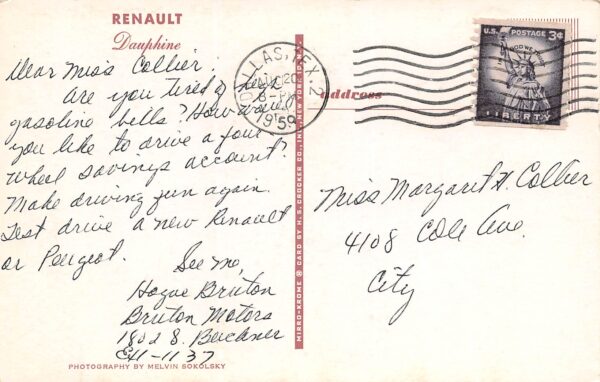 RENAULT
Dauphine
Dear Miss Collier:
Are you tired of high
gasoline bills? How would
you like to drive a four
wheel savings account?
Make driving fun again.
Test drive a new Renault
or Peugeot.
See me,
Hogue Bruton
Bruton Motors
1802 S. Buckner
EX1-1137
PHOTOGRAPHY BY MELVIN SOKOLSKY
MIRRO-KROME ® CARD BY H. S. CROCKER CO., INC., NEW YORK
DALLAS, TEX. 2
AUG 20
8-PM
1959
Address
U.S. POSTAGE 3¢
IN GOD WE TRUST
LIBERTY
Miss Margaret H. Collier
4108 Cole Ave.
City